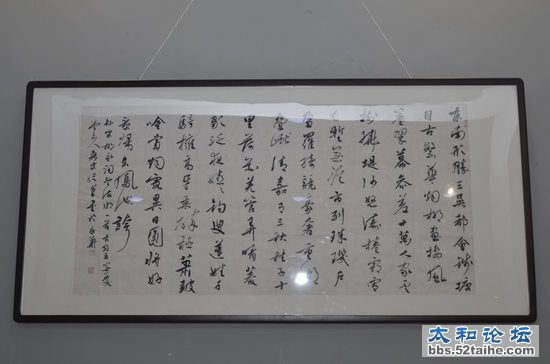 東南形勝三吴都會錢塘
自古繁華烟柳畫橋風
簾翠幕參差十萬人家雲
樹繞堤沙怒濤捲霜雪
天塹無涯市列珠璣戶
盈羅綺競豪奢重湖
疊巘清嘉有三秋桂子十
里荷花羌管弄晴菱
歌泛夜嬉々釣叟蓮娃千
騎擁高牙乘醉聽簫鼓
吟賞烟霞異日圖將好
景歸去鳳池誇
太和论坛
bbs.52taihe.com